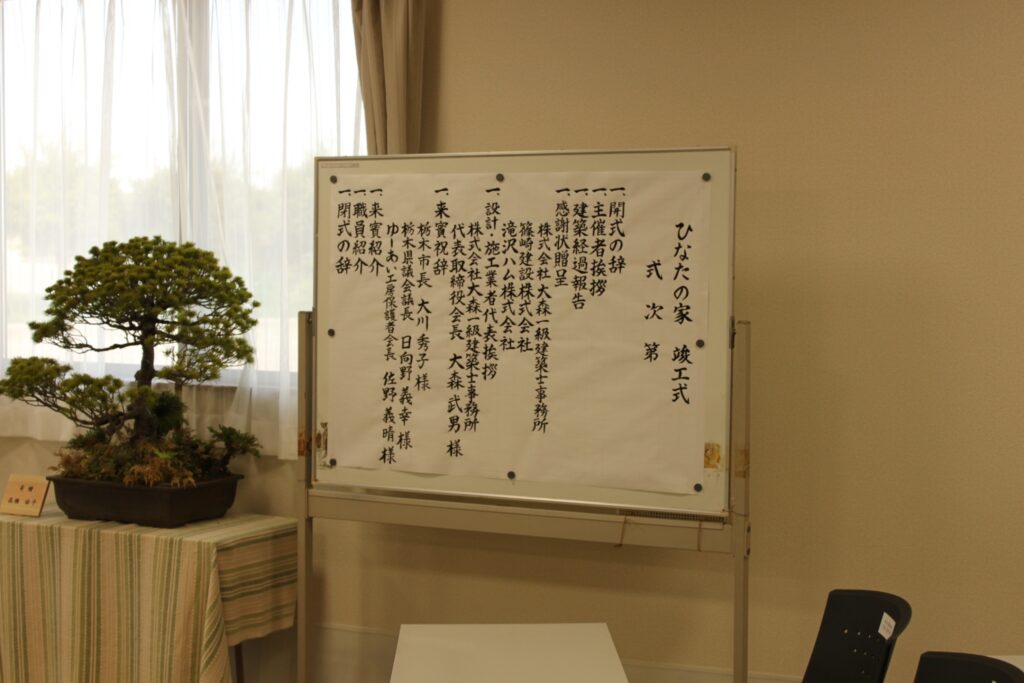 ひなたの家 竣工式
式次第
一、開式の辞
一、主催者挨拶
一、建築経過報告
一、感謝状贈呈
株式会社大森一級建築士事務所
篠崎建設株式会社
滝沢ハム株式会社
一、設計・施工業者代表挨拶
株式会社大森一級建築士事務所
代表取締役会長 大森武男様
一、来賓祝辞
栃木市長 大川秀子様
栃木県議会議長 日向野義幸様
ゆーあい工房保護者会長 佐野義晴様
一、来賓紹介
一、職員紹介
一、閉式の辞